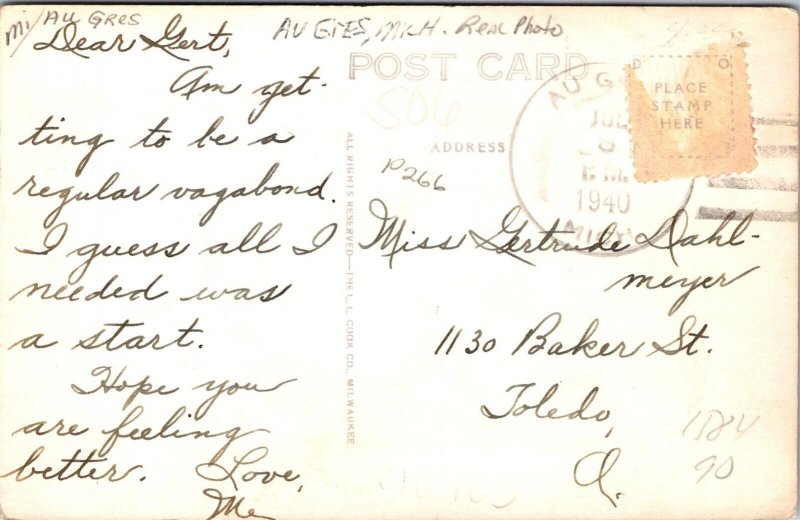 Mi/ Au Gres
Au Gres, Mich. Real Photo
Dear Gert,
Am get-
ting to be a
regular vagabond.
I guess all I
needed was
a start.
Hope you
are feeling
better. Love,
Me
ALL RIGHTS RESERVED—THE L. L. COOK CO., MILWAUKEE
POST CARD
506
ADDRESS
P266
AU G
JUL
P.M.
1940
MICH
D O
PLACE
STAMP
HERE
Miss Gertrude Dahl-
meyer
1130 Baker St.
Toledo,
O.
1584
90